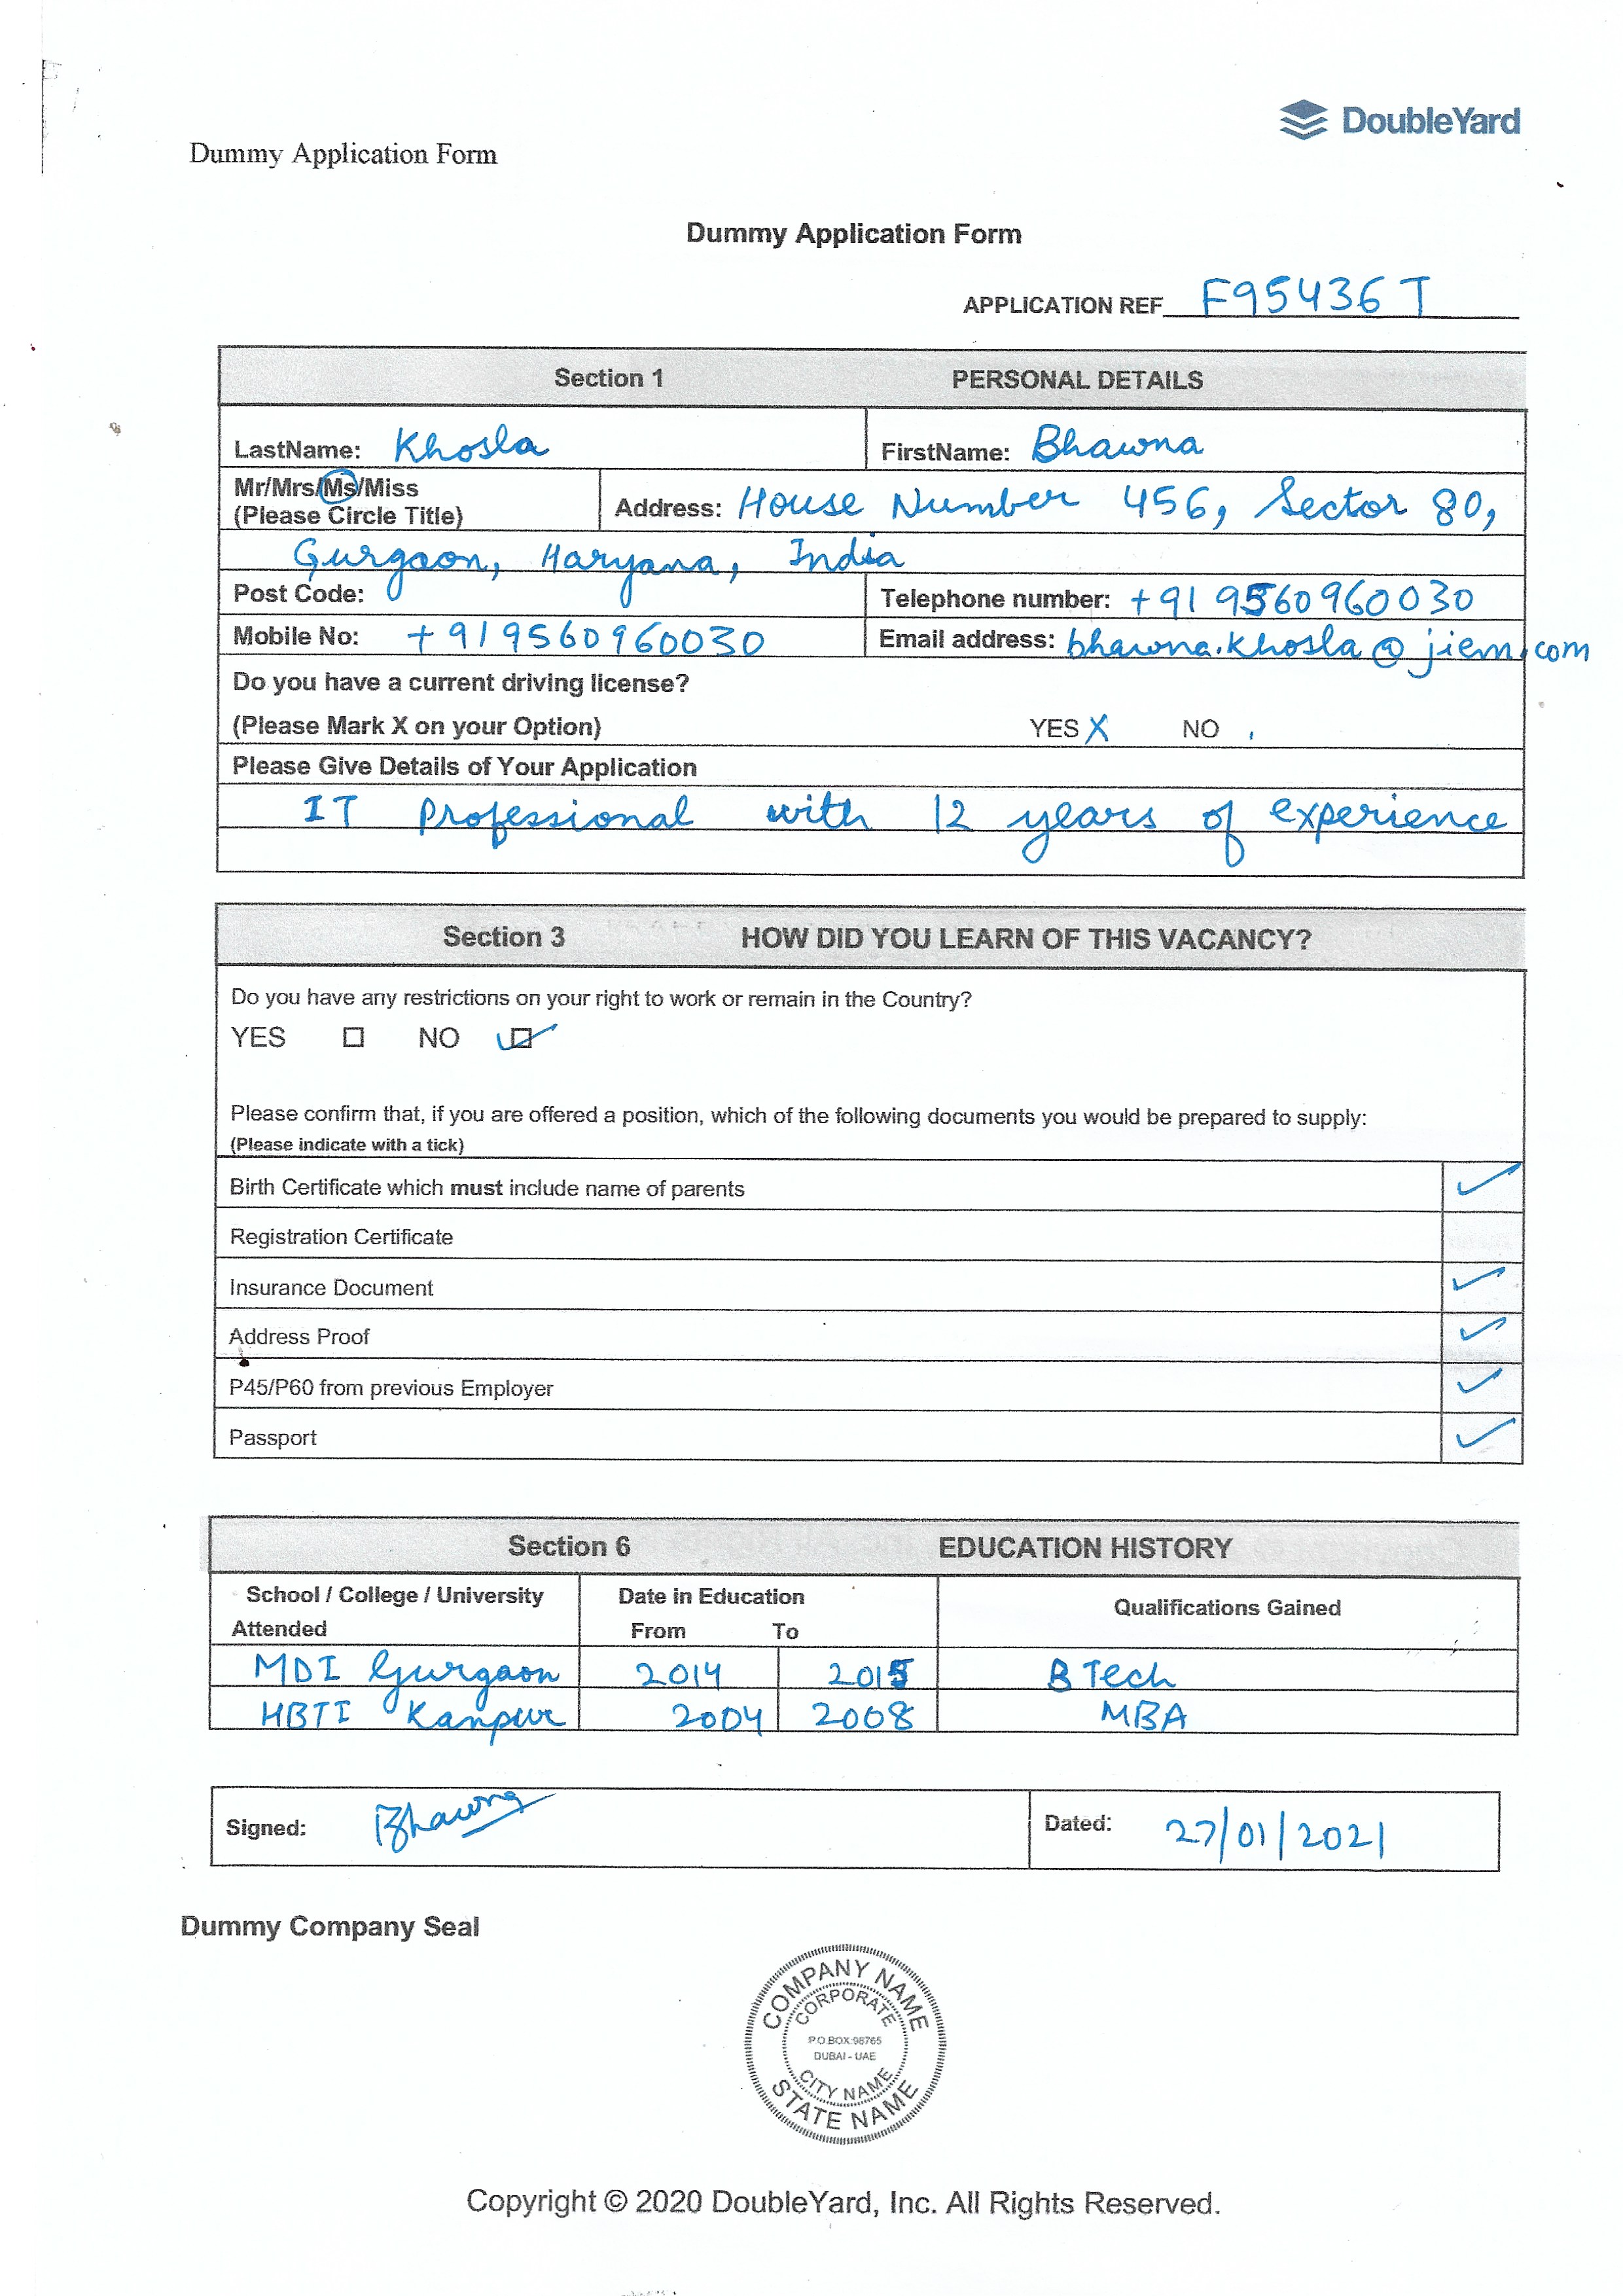 DoubleYard
Dummy Application Form
Dummy Application Form
APPLICATION REF F95436T
Section 1 PERSONAL DETAILS
LastName: Khosla FirstName: Bhawna
Mr/Mrs/Ms/Miss
(Please Circle Title) Address: House Number 456, Sector 80,
Gurgaon, Haryana, India
Post Code: Telephone number: +91 9560960030
Mobile No: +919560960030 Email address: bhawna.khosla@jiem.com
Do you have a current driving license?
(Please Mark X on your Option) YES X NO
Please Give Details of Your Application
IT Professional with 12 years of experience
Section 3 HOW DID YOU LEARN OF THIS VACANCY?
Do you have any restrictions on your right to work or remain in the Country?
YES ☐ NO ☑
Please confirm that, if you are offered a position, which of the following documents you would be prepared to supply:
(Please indicate with a tick)
Birth Certificate which must include name of parents ✓
Registration Certificate
Insurance Document ✓
Address Proof ✓
P45/P60 from previous Employer ✓
Passport ✓
Section 6 EDUCATION HISTORY
School / College / University Date in Education Qualifications Gained
Attended From To
MDI Gurgaon 2014 2015 B Tech
HBTI Kanpur 2004 2008 MBA
Signed: Bhawna Dated: 27/01/2021
Dummy Company Seal
COMPANY NAME
CORPORATE
P.O.BOX:98765
DUBAI - UAE
CITY NAME
STATE NAME
Copyright © 2020 DoubleYard, Inc. All Rights Reserved.